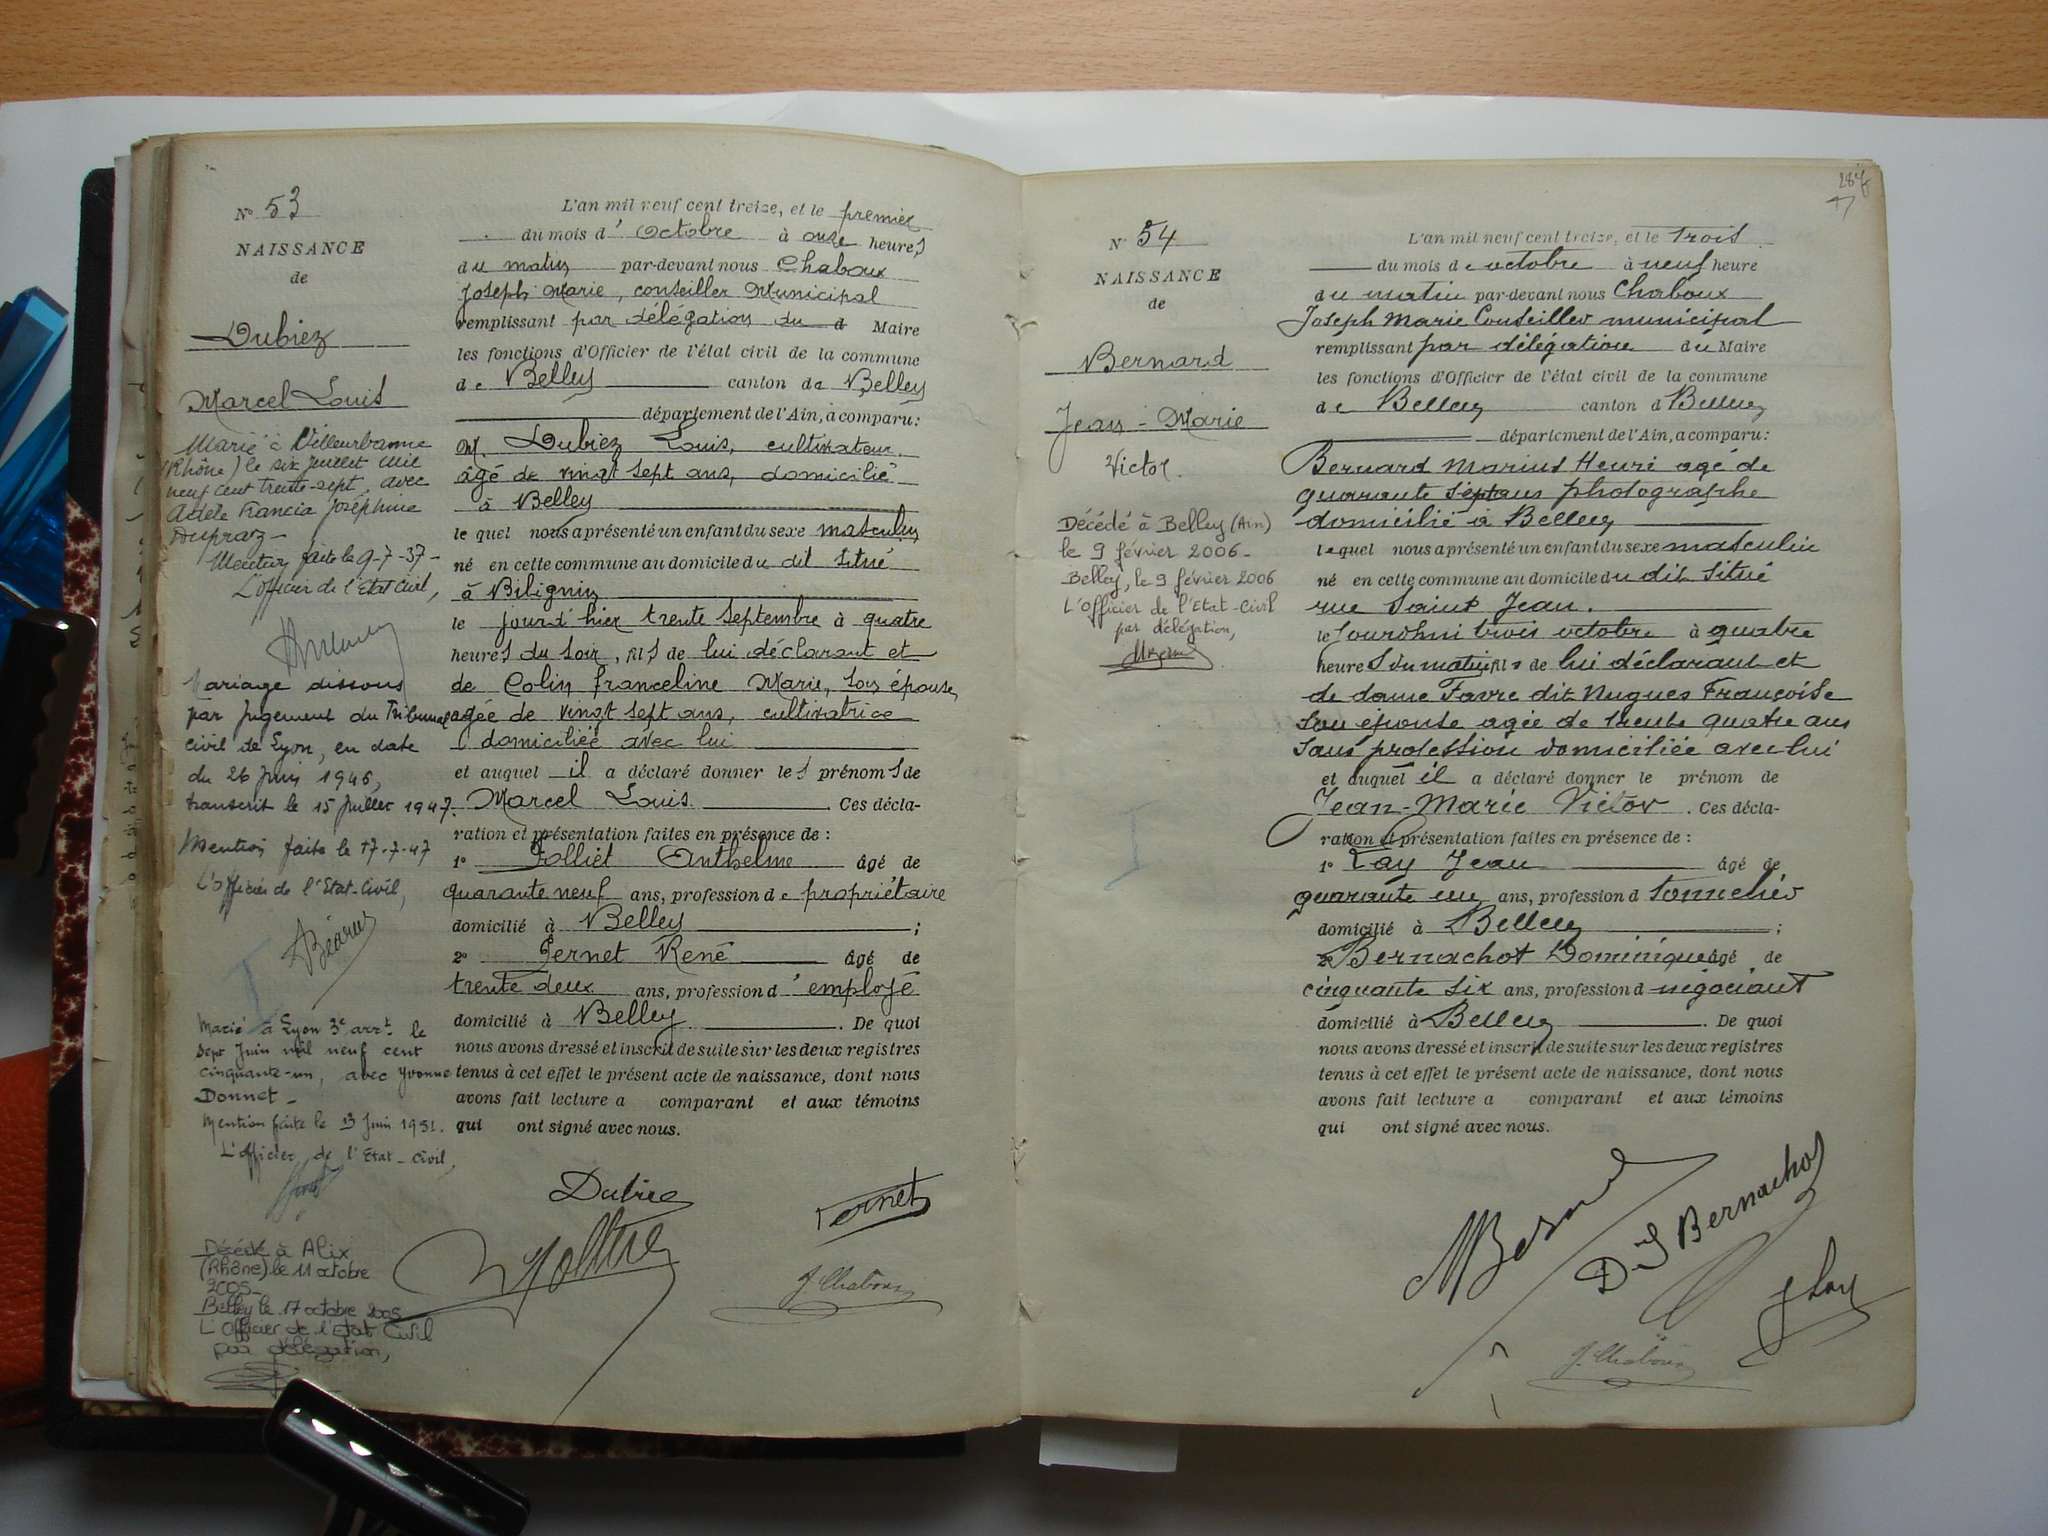 N° 53
NAISSANCE
de
Dubiez
Marcel Louis
Marié à Villeurbanne
(Rhône) le six juillet mil
neuf cent trente-sept, avec
Adèle Francia Joséphine
Dupraz -
Mention faite le 9-7-37 -
L'officier de l'Etat civil,
Mariage dissous
par jugement du Tribunal
civil de Lyon, en date
du 26 juin 1946,
transcrit le 15 juillet 1947.
Mention faite le 17-7-47
L'officier de l'Etat-Civil,
Marié à Lyon 3e arrt. le
sept Juin mil neuf cent
cinquante-un, avec Yvonne
Donnet -
Mention faite le 13 Juin 1951.
L'officier de l'Etat-civil,
Décédé à Alix
(Rhône) le 11 octobre
2005 -
Belley le 17 octobre 2005
L'Officier de l'Etat Civil
par délégation,
L'an mil neuf cent treize, et le premier
du mois d'octobre à onze heures
du matin par-devant nous Chaboux
Joseph Marie, conseiller Municipal
remplissant par délégation du d Maire
les fonctions d'Officier de l'état civil de la commune
de Belley canton de Belley
département de l'Ain, a comparu:
M. Dubiez Louis, cultivateur
âgé de vingt sept ans, domicilié
à Belley
le quel nous a présenté un enfant du sexe masculin
né en cette commune au domicile du dit situé
à Bilignin
le jourd'hier trente septembre à quatre
heures du soir, fils de lui déclarant et
de Colin franceline Marie, son épouse,
agée de vingt sept ans, cultivatrice
domiciliée avec lui
et auquel il a déclaré donner les prénoms de
Marcel Louis. Ces décla-
ration et présentation faites en présence de :
1° Jolliet Anthelme âgé de
quarante neuf ans, profession de propriétaire
domicilié à Belley ;
2° Pernet René âgé de
trente deux ans, profession d'employé
domicilié à Belley. De quoi
nous avons dressé et inscrit de suite sur les deux registres
tenus à cet effet le présent acte de naissance, dont nous
avons fait lecture a comparant et aux témoins
qui ont signé avec nous.
Dubiez
Pernet
J. Chaboux
287
N° 54
NAISSANCE
de
Bernard
Jean-Marie
Victor.
Décédé à Belley (Ain)
le 9 février 2006 -
Belley, le 9 février 2006
L'Officier de l'Etat-Civil
par délégation,
L'an mil neuf cent treize, et le trois
du mois de octobre à neuf heure
du matin par-devant nous Chaboux
Joseph Marie Conseiller municipal
remplissant par délégation du Maire
les fonctions d'Officier de l'état civil de la commune
de Belley canton d Belley
département de l'Ain, a comparu:
Bernard Marius Henri agé de
quarante sept ans photographe
domicilié à Belley
lequel nous a présenté un enfant du sexe masculin
né en cette commune au domicile du dit situé
rue Saint Jean.
le jourdhui trois octobre à quatre
heures du matin fils de lui déclarant et
de dame Favre dit Nugues Françoise
son épouse agée de trente quatre ans
sans profession domiciliée avec lui
et auquel il a déclaré donner le prénom de
Jean-Marie Victor. Ces décla-
ration et présentation faites en présence de :
1° Lay Jean âgé de
quarante un ans, profession d tonnelier
domicilié à Belley ;
2° Bernachot Dominique âgé de
cinquante six ans, profession d négociant
domicilié à Belley. De quoi
nous avons dressé et inscrit de suite sur les deux registres
tenus à cet effet le présent acte de naissance, dont nous
avons fait lecture a comparant et aux témoins
qui ont signé avec nous.
MBernard
D Bernachot
J Lay
J. Chaboux